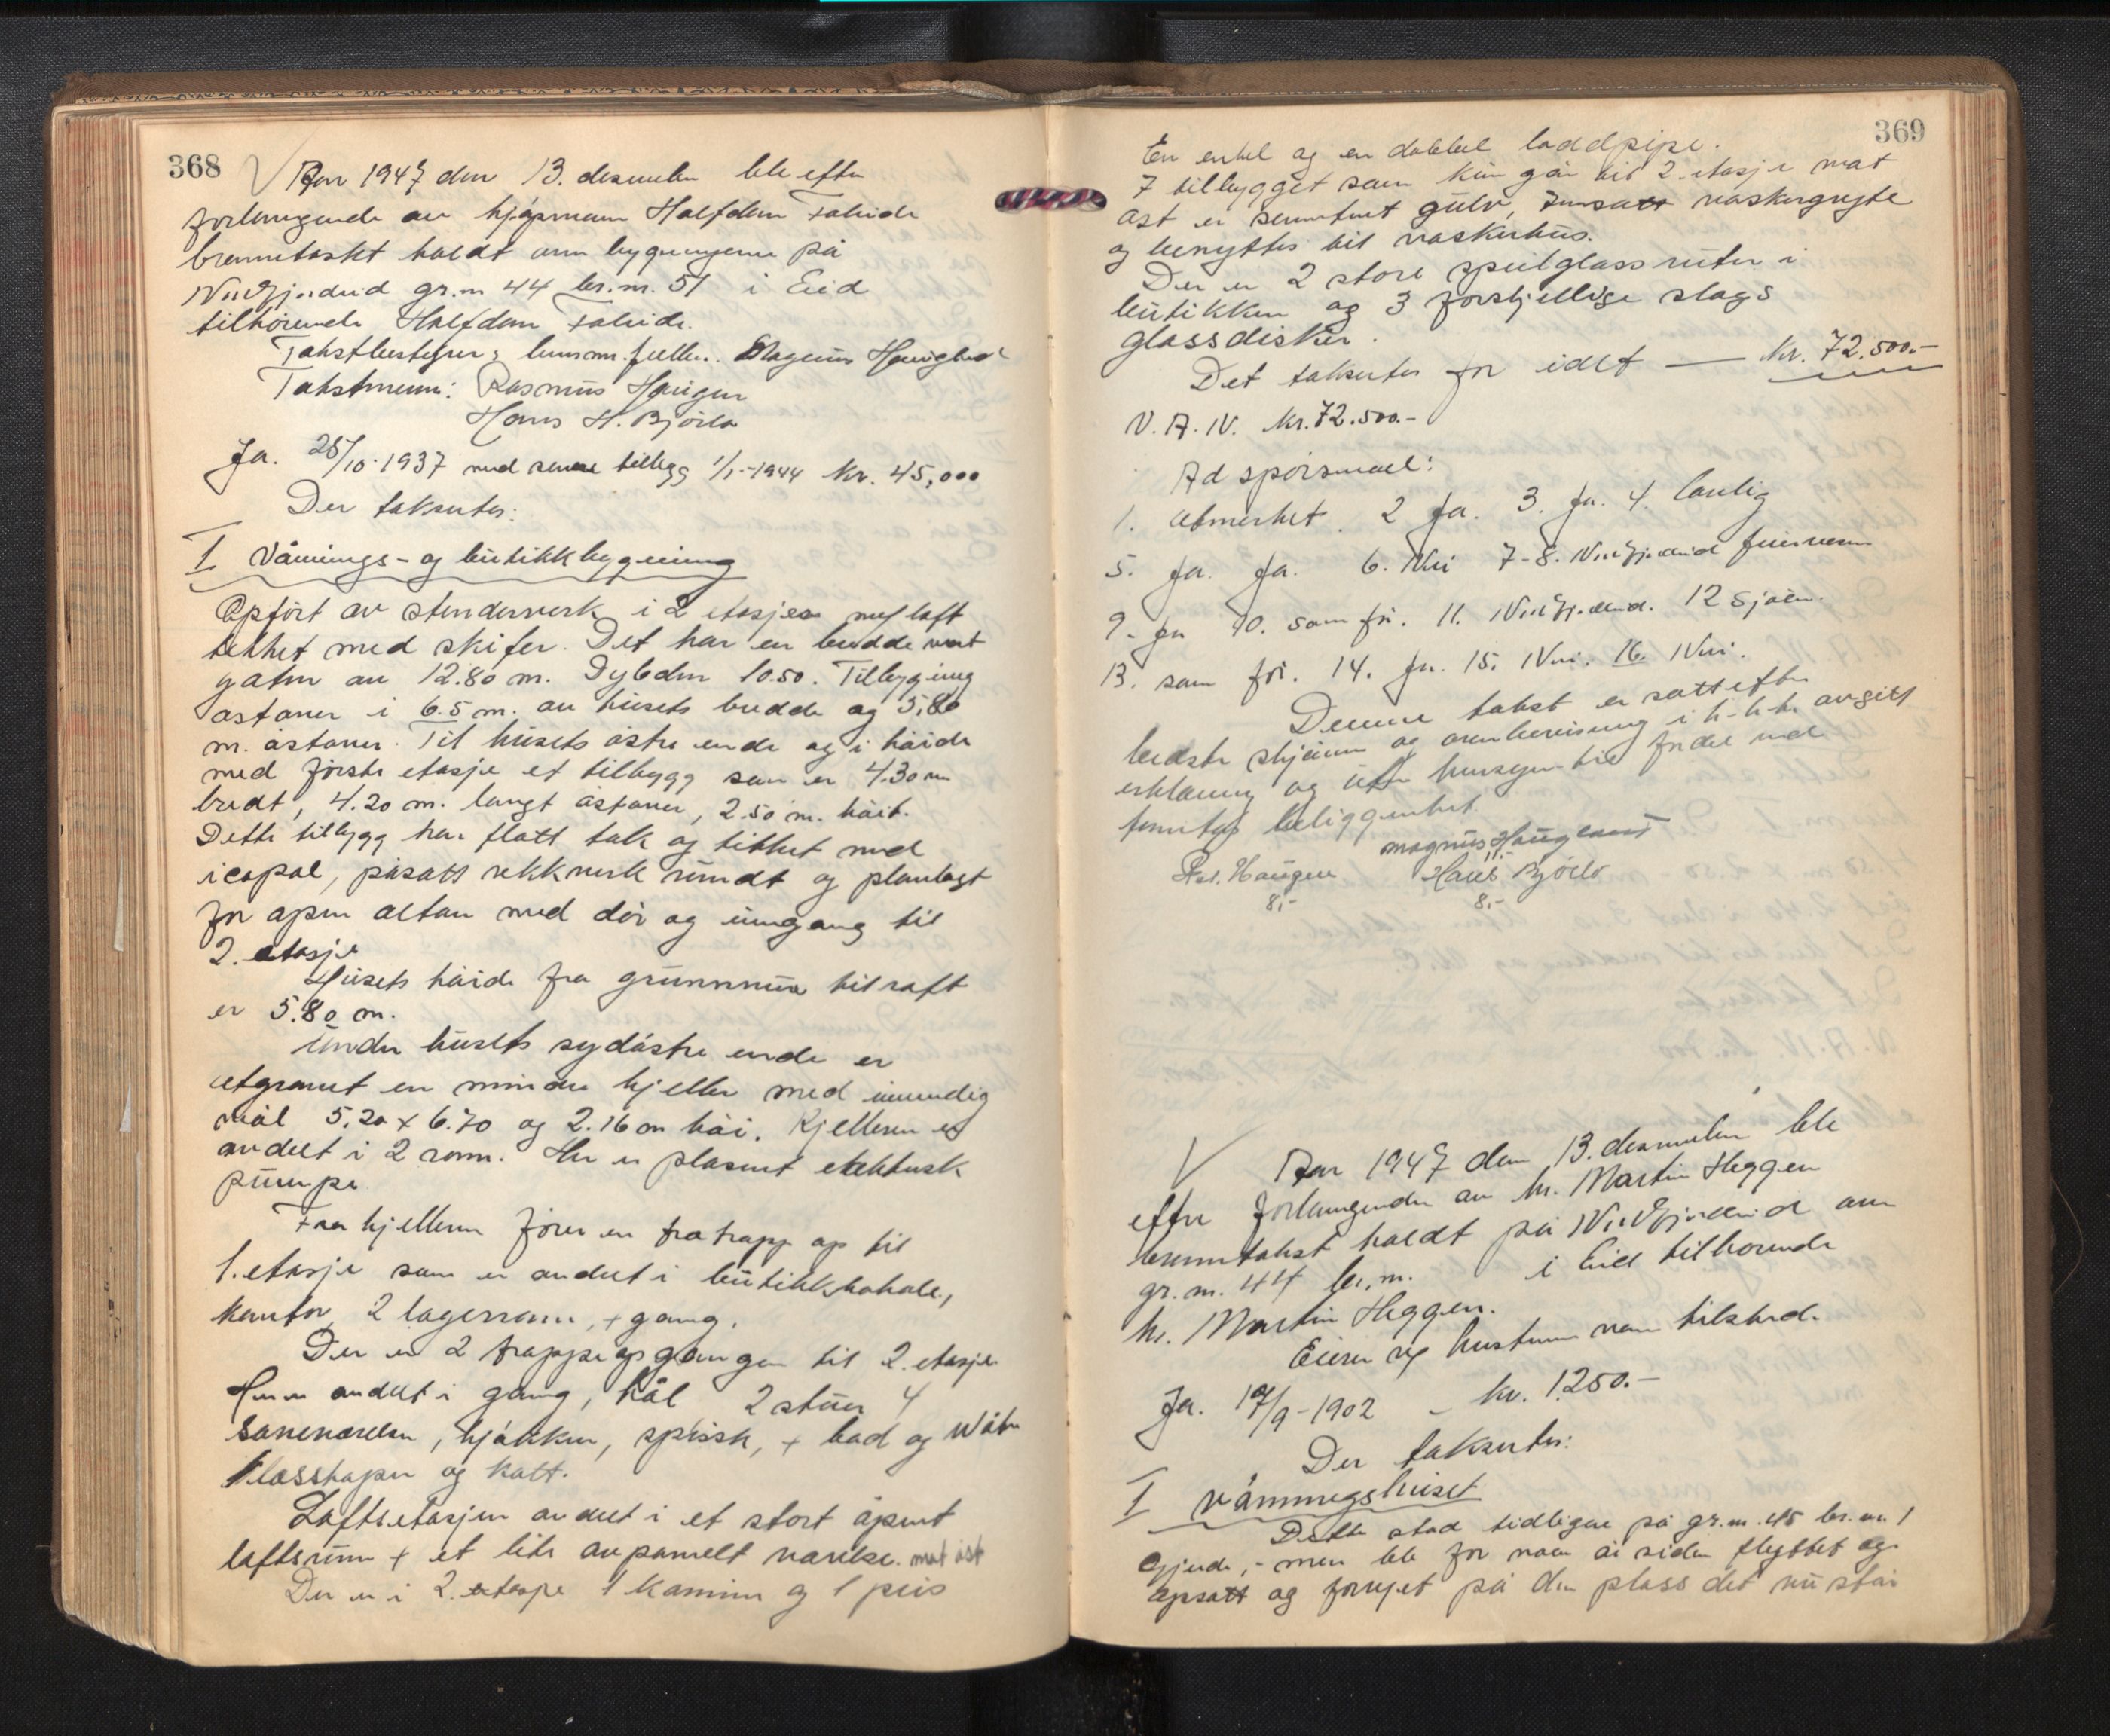 368
Aar 1947 den 13. desember ble efter
forlangende av kjøpmann Halfdan Taleide
branntakst holdt over bygningerne på
Nordfjordeid gr.nr. 44 br.nr. 51 i Eid
tilhørende Halfdan Taleide.
Takstbestyrer: lensm.fullm. Magnus Haugland
Takstmenn: Rasmus Haugen
Hans H. Bjørlo
Ja. 28/10-1937 med senere tillegg 1/1-1944 kr. 45,000
Der takseres:
I Vånings- og butikkbygning
Opført av stenderverk i 2 etasjer med loft
tekket med skifer. Det har en bredde mot
gaten av 12.80 m. Dybden 10.50. Tilbygning
østover i 6.5 m. av husets bredde og 5,80
m. østover. Til husets østre ende og i høide
med første etasje et tilbygg som er 4.30 m
bredt, 4.20 m. langt østover, 2.50 m. høit.
Dette tilbygg har flatt tak og tekket med
icopal, påsatt rekkverk rundt og planlagt
for åpen altan med dør og inngang til
2. etasje
Husets høide fra grunnmur til raft
er 5.80 m.
Under husets sydøstre ende er
utgravet en mindre kjeller med innvendig
mål 5.20 x 6.70 og 2.16 m høi. Kjelleren er
avdelt i 2 rom. Her er plasert elektrisk
pumpe
Fra kjelleren fører en tretrapp op til
1. etasje som er avdelt i butikklokale,
kontor, 2 lagerrom, + gang.
Der er 2 trappeopganger til 2. etasje
Her er avdelt i gang, hål 2 stuer 4
soveværelser, kjøkken, spissk, + bad og Water
Klosskaper og kott.
Loftsetasjen avdelt i et stort åpent
loftsrum + et lite avpanelt værelse. mot øst
Der er i 2. etasje 1 kamin og 1 peis
369
En enkel og en dobbel loddpipe.
I tilbygget som kun går til 2. etasje mot
øst er sementert gulv, innsatt vaskegryte
og benyttes til vaskerhus.
Der er 2 store speilglassruter i
butikken og 3 forskjellige slags
glassdisker.
Det takseres for idet — Kr. 72.500.-
V.A.N. Kr. 72.500.-
Ad spørsmaal:
1. Utmerket. 2 Ja. 3. Ja. 4. Lovlig
5. Ja. Ja. 6. Nei 7-8. Nordfjordeid feiervesen
9. Ja 10. som før. 11. Nordfjordeid. 12 Sjøen.
13. som før. 14. Ja. 15. Nei. 16. Nei.
Denne takst er satt efter
bedste skjønn og overbevisning i h-h-t. avgitt
erklæring og uten hensyn til fordel ved
tomtas beliggenhet.
Magnus Haugland
11.-
Ras. Haugen Hans Bjørlo
8,- 8.-
Aar 1947 den 13. desember ble
efter forlangende av hr. Martin Heggen
branntakst holdt på Nordfjordeid over
gr.nr. 44 br.nr. i Eid tilhørende
hr. Martin Heggen.
Eieren og hustru var tilstede.
Ja. 19/9-1902 - kr. 1250.-
Der takseres:
I Våningshuset
Dette stod tidligere på gr.nr. 45 br.nr. 1
Gjerde, - men ble for noen år siden flyttet og
opsatt og fornyet på den plass det nu står